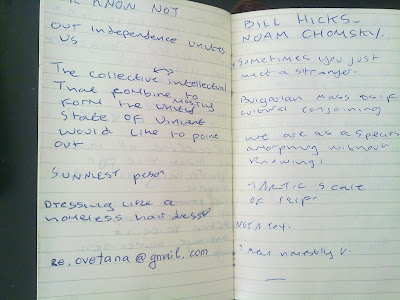 KNOW NOT
OUT independence unites
us
The collective intellectual
That combine to
form the mostly
State of Vincent
Would Like to point
out
SUNNIEST person
DRessing Like a
homeless hair dresser
Re.ovetana@gmail.com
BILL HICKS-
NOAM CHOMSKY.
Sometimes you just
meet a stranger.
Bulgarian Mass
cultural conjoining
we are as a species
amorphing without
knowing!
ARTIC Scale
of
NOT A
honestly